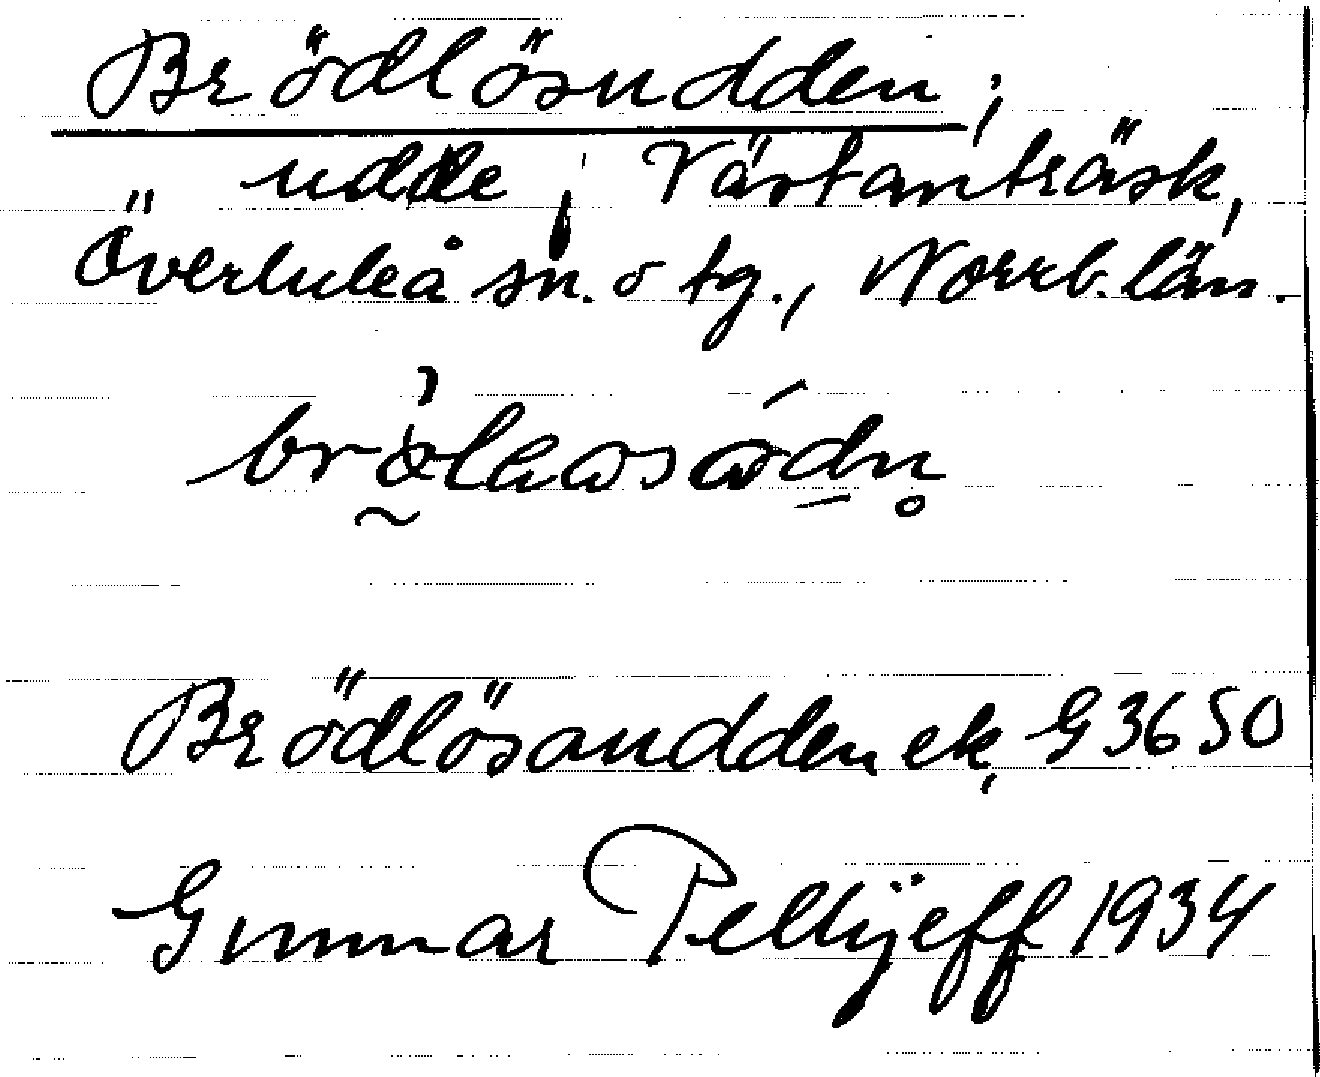 Brödlösudden;
udde i Västanträsk,
Överluleå sn. o tg., Norrb. län.
Brödlösaudden ek, G3650
Gunnar Pellijeff 1934